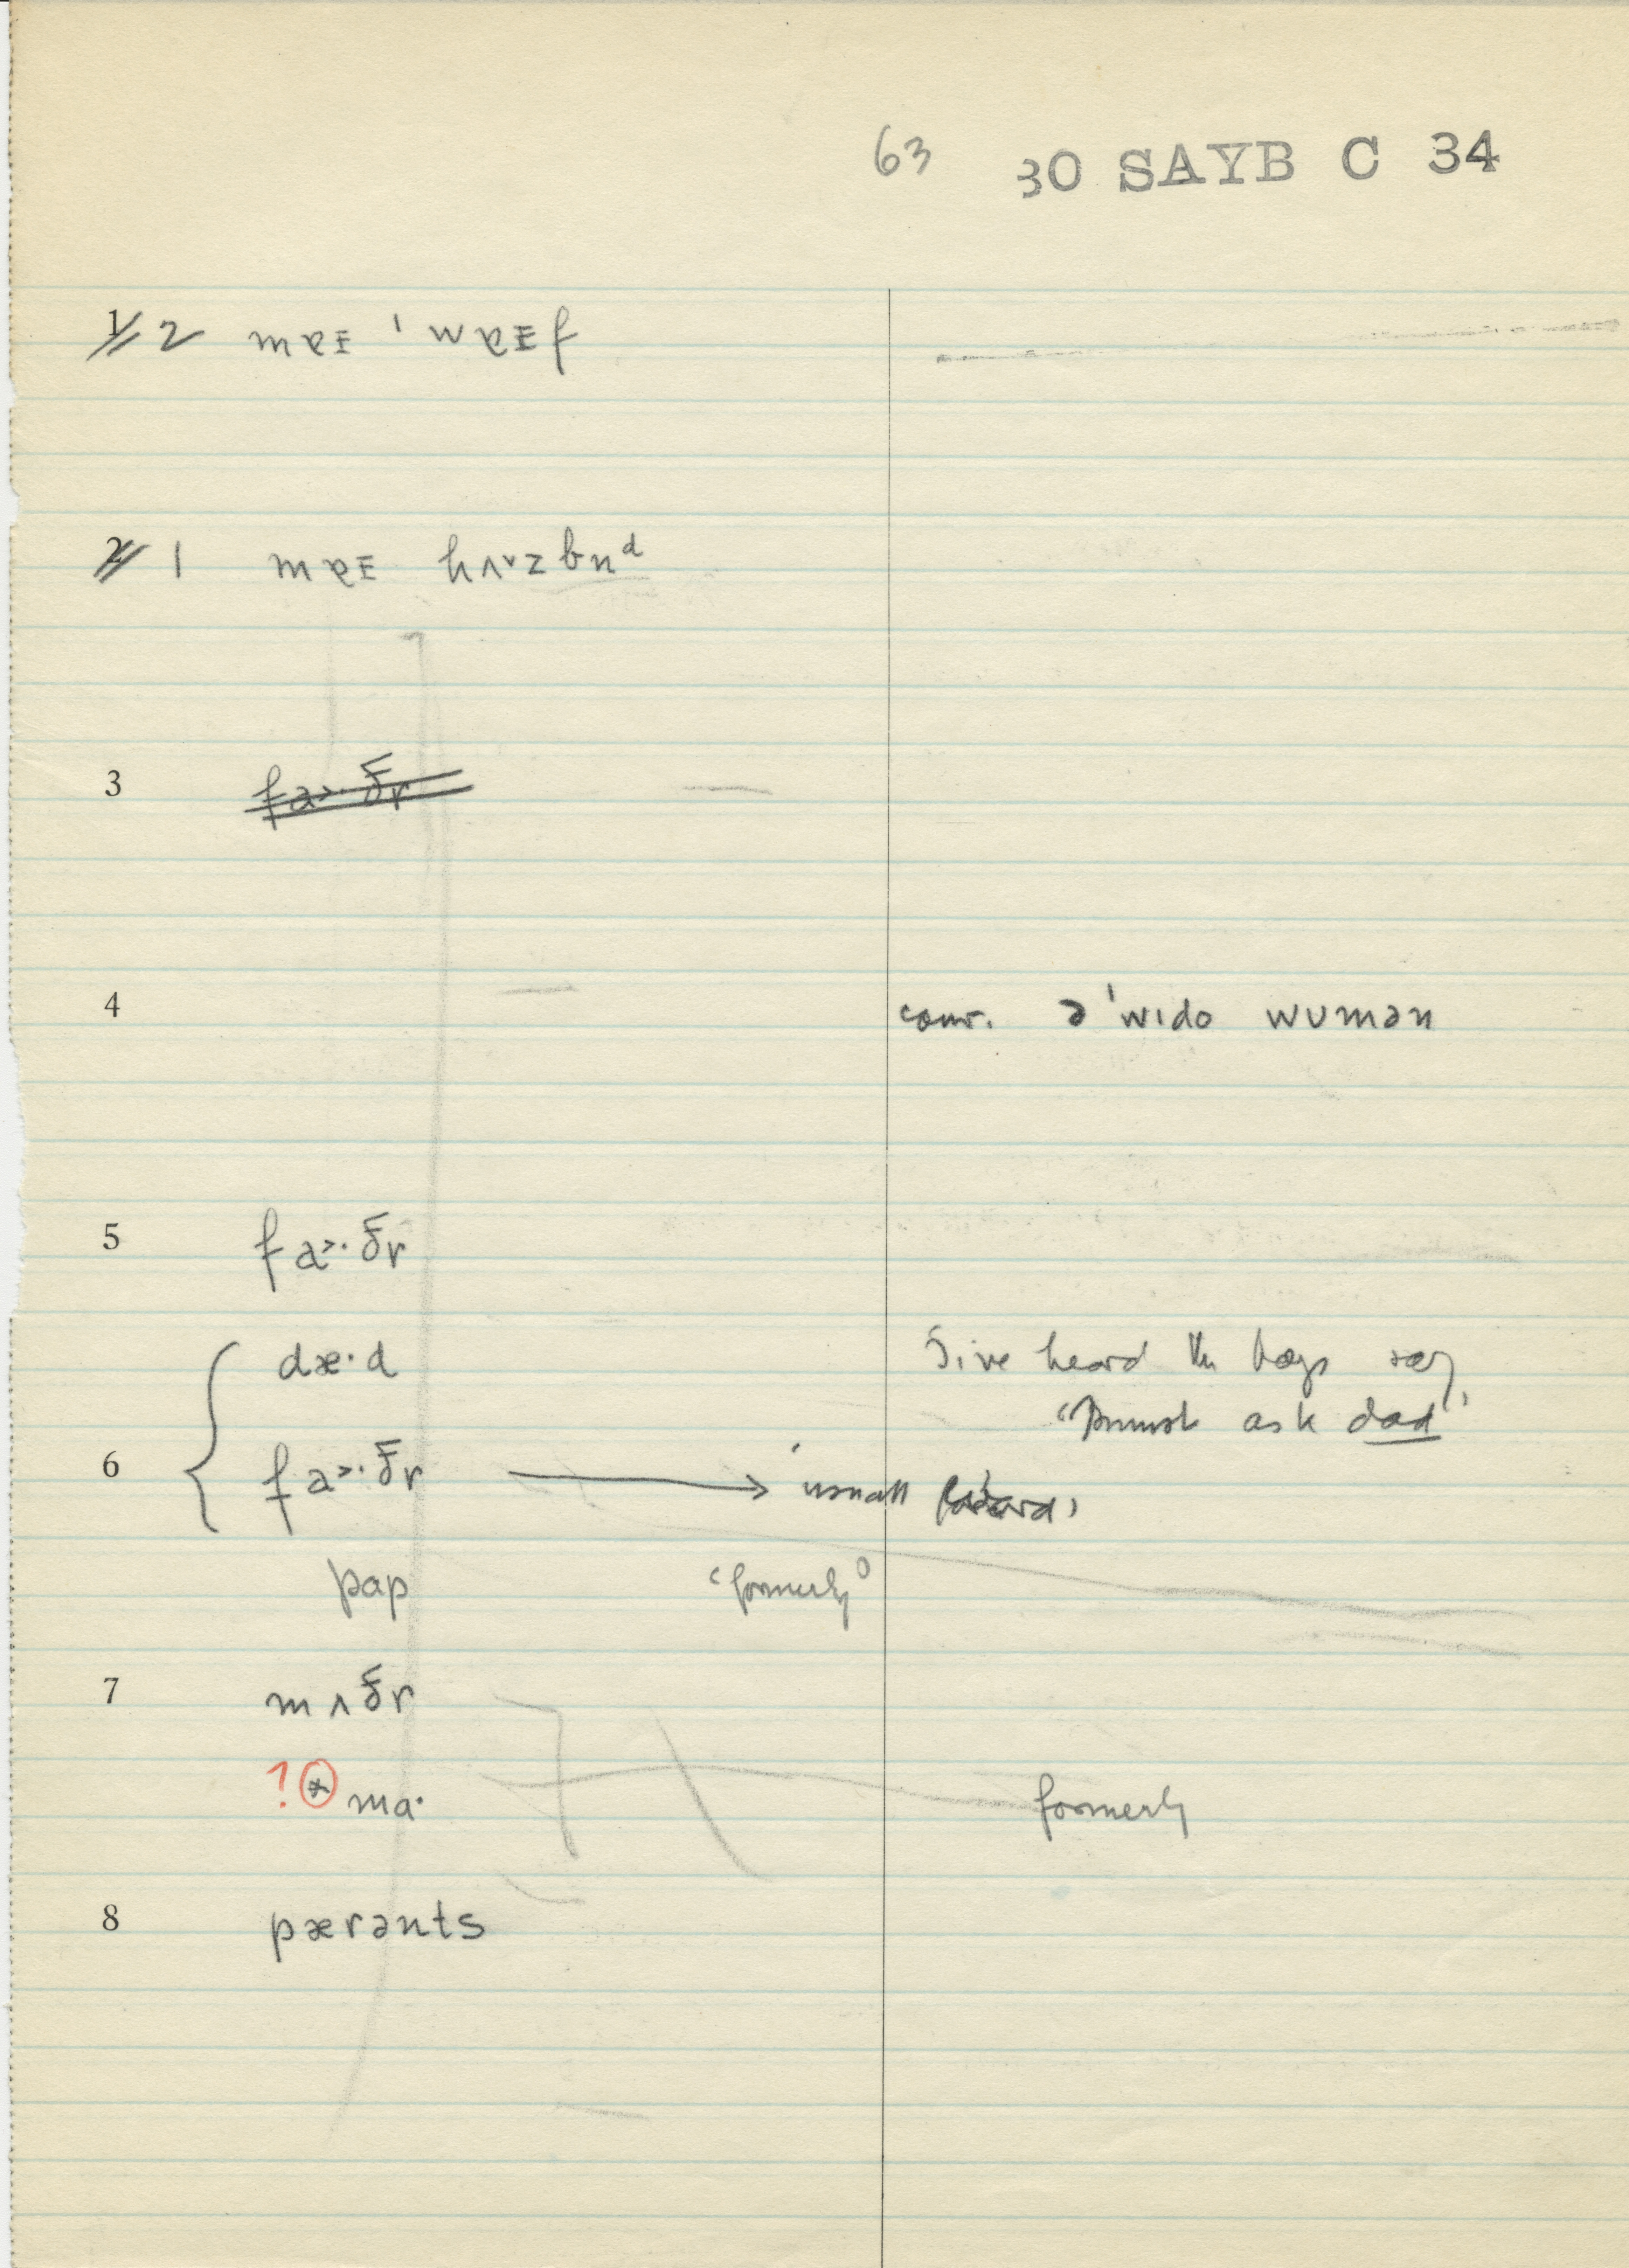 63 30 SAYB C 34
1 2 mɐᴇ ˈwɐᴇf
2 1 mɐᴇ hʌ˅zbnᵈ
3 fa˃·ðr
4 conv. ə ˈwɪdo wumən
5 fa˃·ðr
dæ·d I've heard the boys say,
"I must ask dad"
6 fa˃·ðr → usual
pap "formerly"
7 mʌðr
?* ma· formerly
8 pærənts